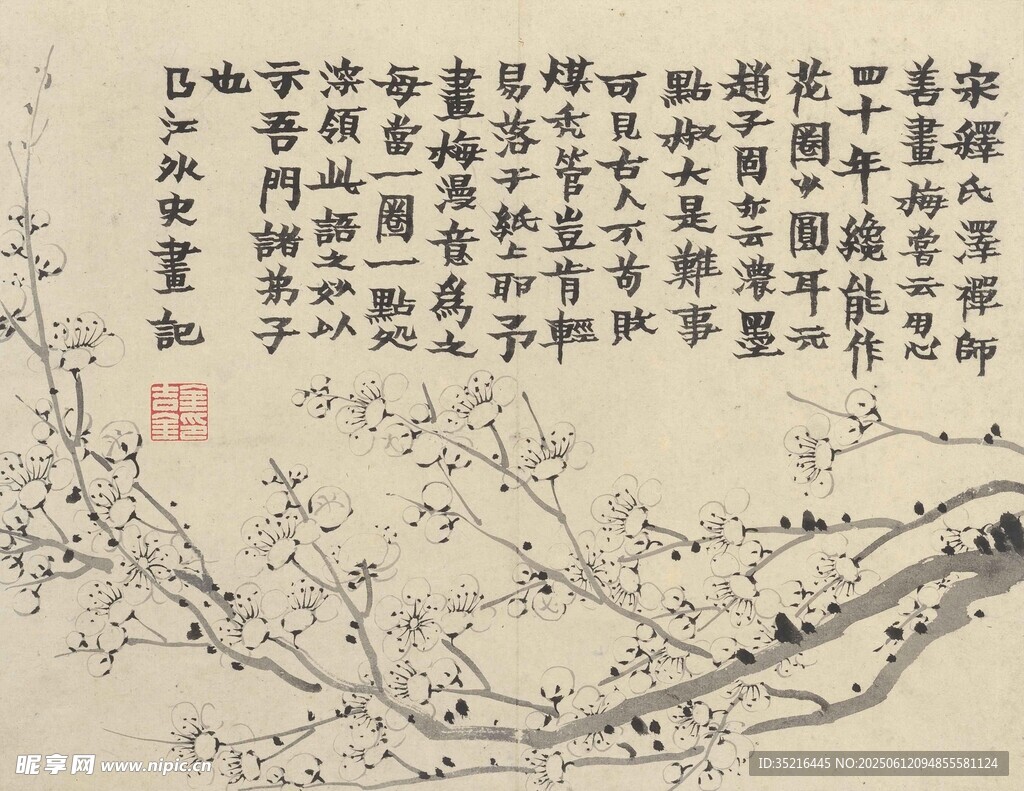 宋釋氏澤禪師
善畫梅嘗云用心
四十年纔能作
花圈少圓耳元
趙子固亦云濃墨
點椒大是難事
可見古人不苟敗
煤禿管豈肯輕
易落于紙上耶予
畫梅漫意為之
每當一圈一點処
深領此語之妙以
示吾門諸弟子
也
已江外史畫記
金吉金印
昵享网 www.nipic.cn
ID:35216445 NO:20250612094855581124